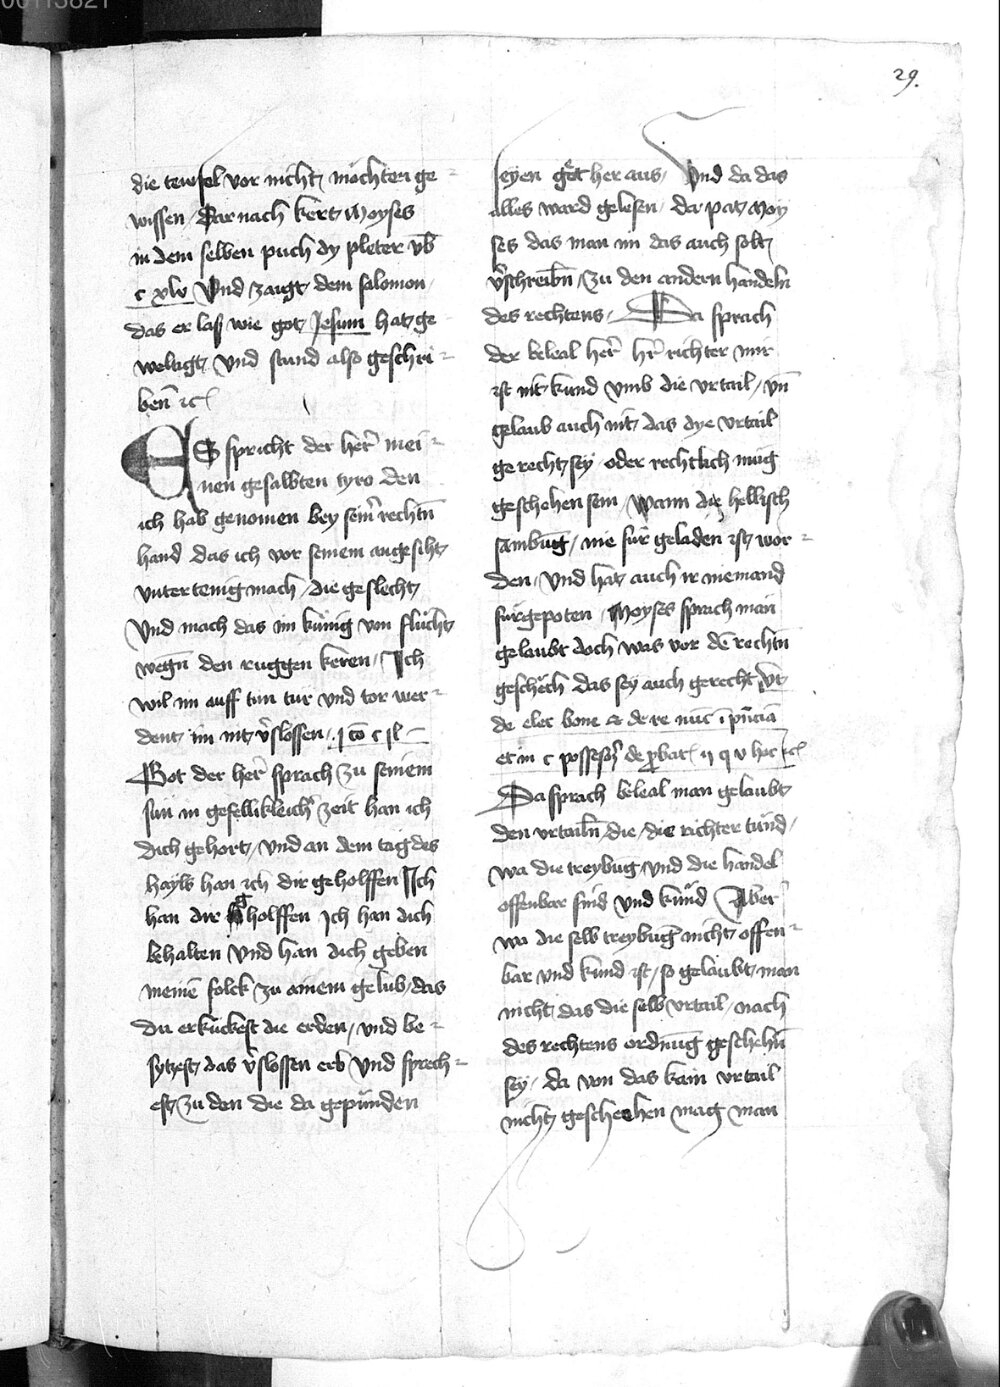 00113821
29.
die teufel vor nicht möchten ge
wissen / Darnach kert Moyses
in dem selben puch dy pleter vb̄
c xlv Vnd zaigt dem salomon
das er laß wie got Jesum hat ge
weltigt Vnd stund also geschri
ben̄ ꝛc
ES spricht der her̄ mei
nen gesalbten tyro den
ich hab genomen bey sein̄ rechtn̄
hand das ich vor seinem angesiht
vntertenig mach / die geslecht
Vnd mach das im künig von flücht
wegn̄ den ruggen keren / Ich
wil im auff tun tur vnd tor wer
dent im nit v̄slossen /
Got der her̄ sprach zu seinem
sun in gefellikleich zeit han ich
dich gehort / vnd an dem tag des
hayls han ich dir geholffen Ich
han dir g holffen Ich han dich
behalten Vnd han dich geben
meinē folck zu ainem gelub / das
du erkückest die erden / vnd be
sytzest das v̄slossen erb Vnd sprech
est zu den die da gepunden
seyen göt her aus / Vnd da das
alles ward gelesen / da pat Moy
ses das man im das auch solt
v̄schreibn̄ / zu den andern handeln
des rechtens / Da sprach
der beleal her̄ hr̄ richter mir
ist nit kund vmb die vrtail / vn̄
gelaub auch nit das dye vrtail
gerecht sey oder rechtlich mug
geschehen sein / Wann die hellisch
sambūg / nie für geladen ist wor
den / Vnd hat auch ir niemand
fürgepoten / Moyses sprach man
gelaubt doch was vor dē rechtn̄
geschech das sey auch gerecht vt
de elec bone et de re
et in c
Da sprach beleal man gelaubt
den vrtailn̄ die / die richter tund /
wa die treybug vnd die handel
offenbar sind vnd kund Aber
wa die selb treybug nicht offen
bar vnd kund ist / so gelaubt man
nicht das die selb vrtail / nach
des rechtens ordnūg geschehn̄
sey / da von das kain vrtail
nicht geschechen mag man